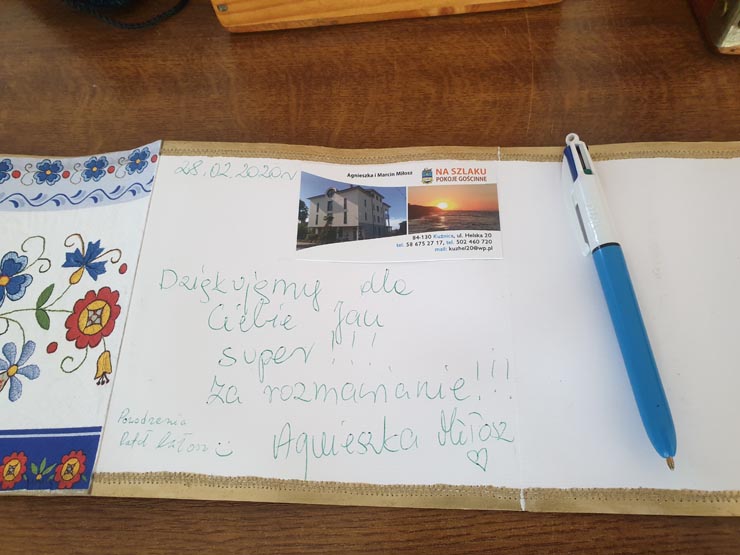 28.02.2020r
Agnieszka i Marcin Miłosz
NA SZLAKU
POKOJE GOŚCINNE
84-130 Kuźnica, ul. Helska 20
tel. 58 675 27 17, tel. 502 460 720
mail: kuzhel20@wp.pl
Dziękujemy dla
Ciebie Jan
super!!!
za rozmawianie!!!
Agnieszka Miłosz
Pozdrowienia